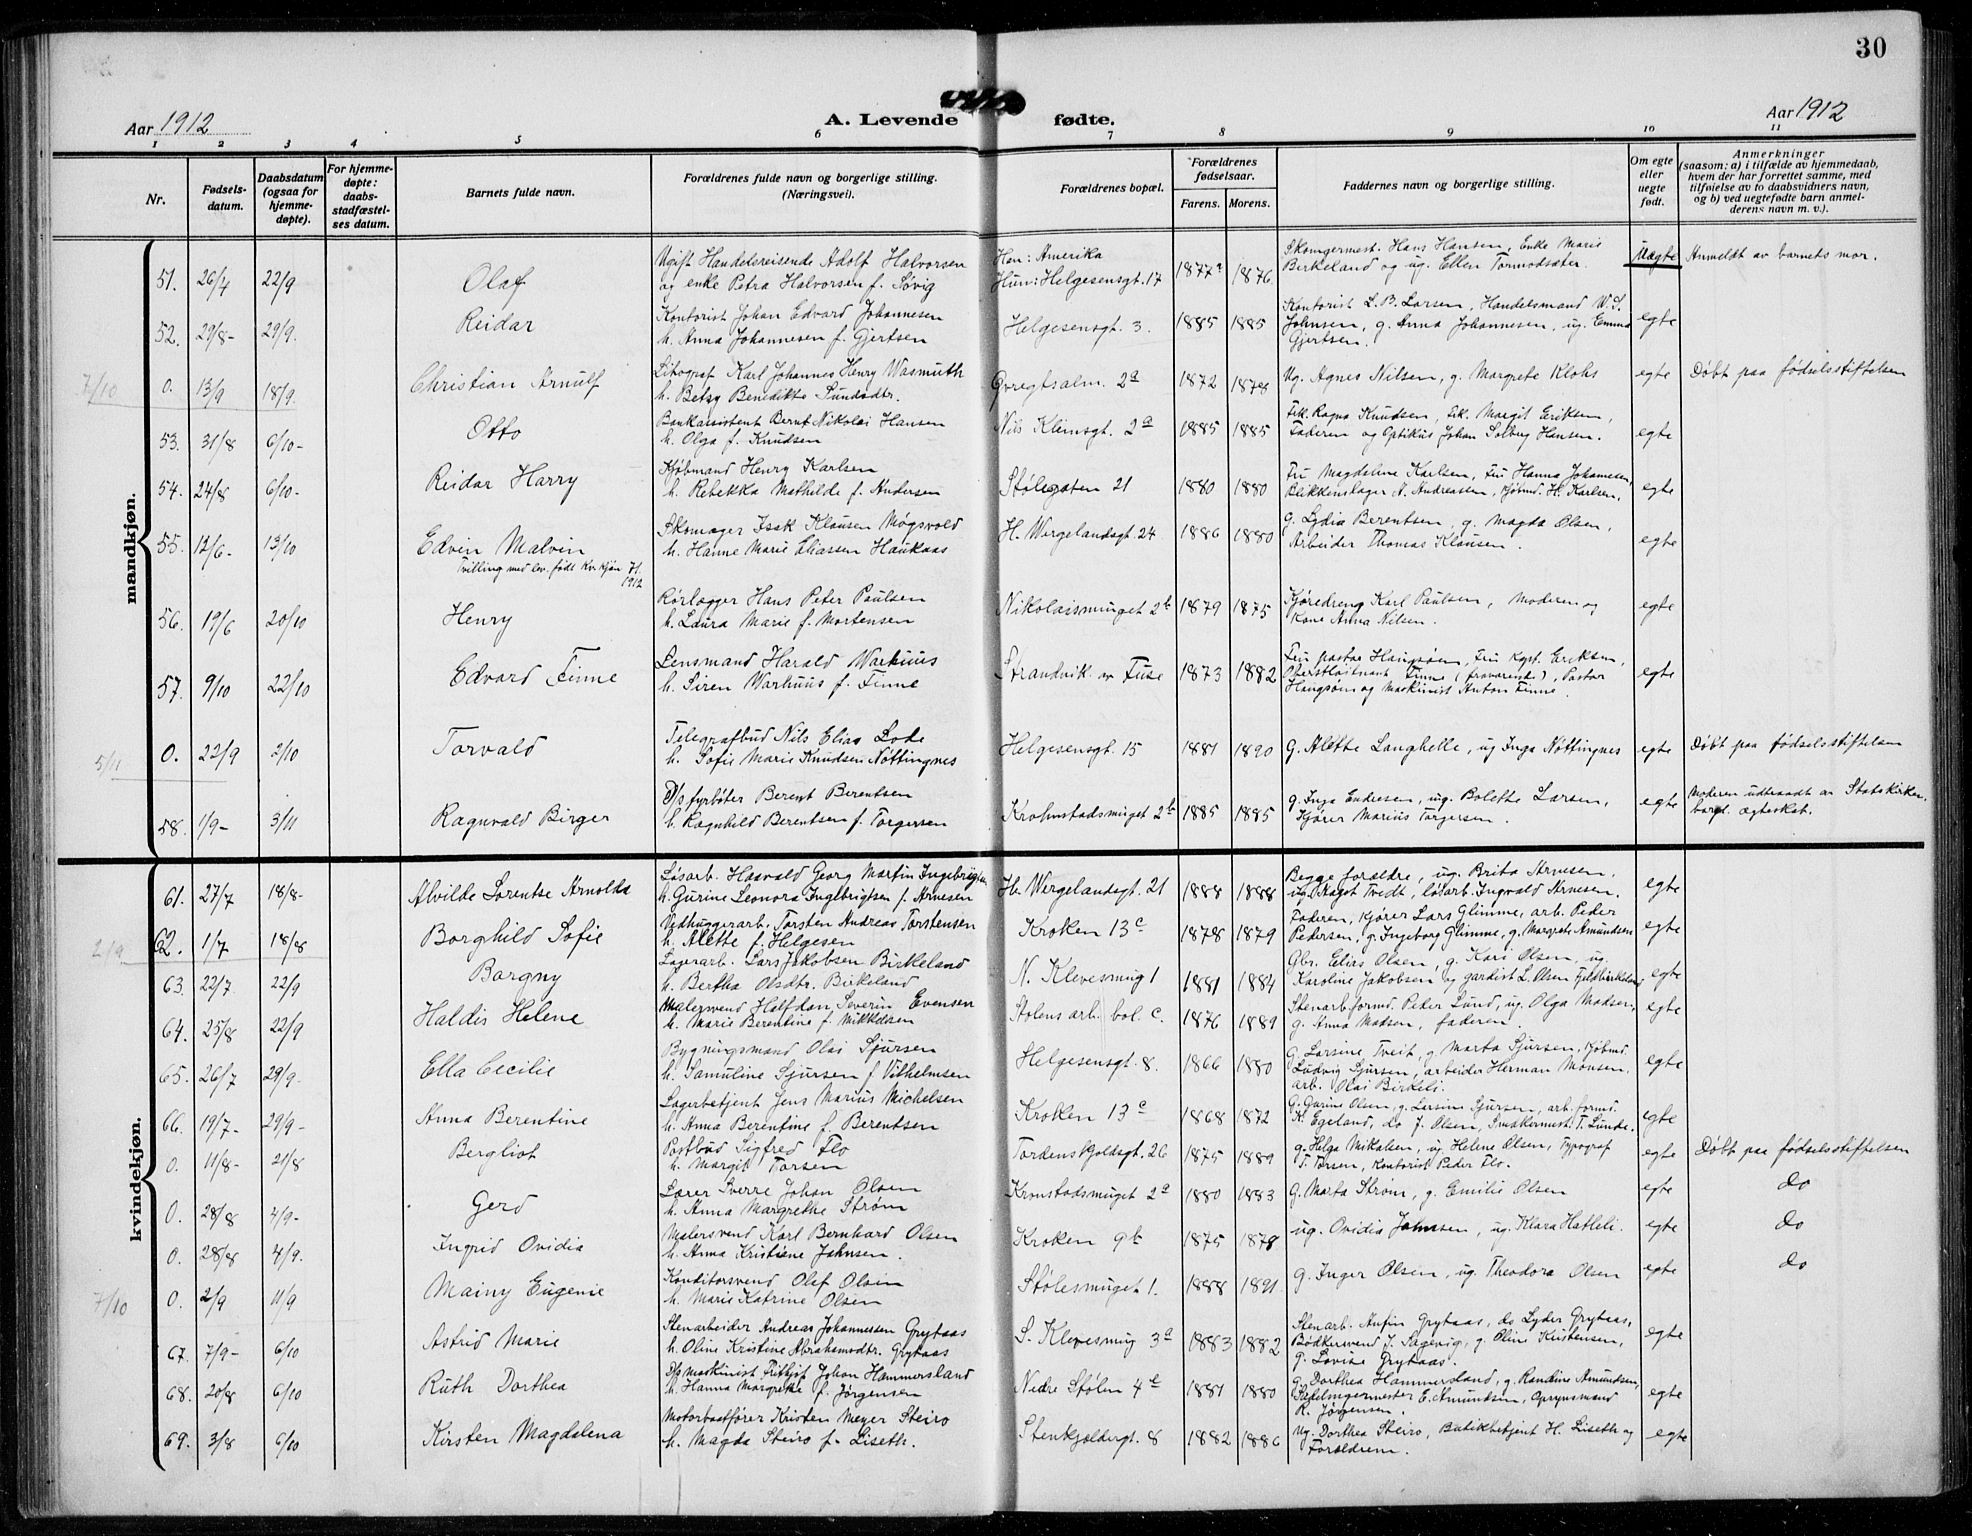 30
Aar 1912
A. Levende fødte.
Aar 1912
1 2 3 4 5 6 7 8 9 10 11
Nr.
Fødselsdatum.
Daabsdatum (ogsaa for hjemmedøpte).
For hjemmedøpte: daabsstadfæstelses datum.
Barnets fulde navn.
Forældrenes fulde navn og borgerlige stilling. (Næringsvei).
Forældrenes bopæl.
Forældrenes fødselsaar.
Farens. Morens.
Faddernes navn og borgerlige stilling.
Om egte eller uegte født.
Anmerkninger (saasom: a) i tilfælde av hjemmedaab, hvem der har forrettet samme, med tilføielse av to daabsvidners navn, og b) ved uegtefødte barn anmelderens navn m. v.).
mandkjøn.
51. 26/4 22/9 Olaf
Ugift Handelsreisende Adolf Halvorsen
og enke Petra Halvorsen f. Søvig
Han: Amerika
Hun: Helgesensgt. 17
1877? 1876
Skomgermest. Hans Hansen, Enke Marie
Birkeland og ug. Ellen Tormodsæter.
Uægte Anmeldt av barnets mor.
52. 29/8- 29/9. Reidar
Kontorist Johan Edvard Johannesen
h. Anna Johannesen f. Gjertsen
Helgesensgt. 3. 1885 1885
Kontorist L. B. Larsen, Handelsmand W. S.
Johnsen, g. Anna Johannesen, ug. Emma
Gjertsen.
egte
7/10
0. 13/9 18/9. Christian Arnulf
Litograf Karl Johannes Henry Wasmuth
h. Betzy Benedikte Sundsdtr.
Øvregtsalm. 2a 1872 1878
Ug. Agnes Nilsen, g. Margrete Klohs
egte Døbt paa fødselsstiftelsen
53. 31/8 6/10- Otto
Bankassistent Bernt Nikolai Hansen
h. Olga f. Knudsen
Nils Kleimsgt. 2a 1885 1885
Frk. Ragna Knudsen, Frk. Margit Eriksen,
Faderen og Optikus Johan Solberg Hansen.
egte
54. 24/8 6/10- Reidar Harry
Kjøbmand Henry Karlsen
h. Rebekka Mathilde f. Andersen
Stølegaten 21 1880 1880
Fru Magdeline Karlsen, Fru Hanna Johannesen,
Blikkenslager N. Andreassen, kjøbmd. H. Karlsen,
egte
55. 12/6- 13/10 Edvin Malvin
Tvilling med lev. født Kv. kjøn 71. 1912
Skomager Isak Klausen Møgsvold
h. Hanne Marie Eliassen Haukaas
H. Wergelandsgt. 24 1886 1880
g. Lydia Berentsen, g. Magda Olsen,
Arbeider Thomas Klausen.
egte
56. 19/6 20/10 Henry
Rørlægger Hans Peter Paulsen
h. Laura Marie f. Mortensen
Nikolaismuget 2b 1879 1875
Kjøredreng Karl Paulsen, Moderen og
Kone Anna Nilsen.
egte
57. 9/10 22/10 Edvard Finne
Lensmand Harald Warhuus
h. Siren Warhuus f. Finne
Strandvik av Fuse 1873 1882
Fru pastor Haugsøen, Fru Kapt. Eriksen,
Oberstløitnant Finne (fraværende), Pastor
Haugsøen og Maskinist Anton Finne.
egte
5/11
0. 22/9 2/10 Torvald
Telegrafbud Nils Elias Lode
h. Sofie Marie Knudsen Nøttingnes
Helgesensgt. 15 1881 1890
G. Alette Langhelle, ug Inga Nøttingnes
egte Døbt paa fødselsstiftelsen
58. 1/9- 3/11 Ragnvald Birger
D/s fyrbøter Berent Berentsen
h. Ragnhild Berentsen f. Torgersen
Krohnstadsmuget 2b 1885 1885
g. Inga Endresen, ug. Bolette Larsen,
Kjører Marius Torgersen.
egte
Moderen udtraadt av Statskirken,
borgl. ægteskab.
kvindekjøn.
61. 27/7 18/8- Alvilde Lorentse Arnolda
Løsarb. Haavald Georg Martin Ingebrigtsen
h. Gurine Leonora Ingebrigtsen f. Arnesen
H. Wergelandsgt. 21 1888 1888
Begge forældre, ug. Brita Arnesen,
ug. Magot Tvedt, løsarb. Ingvald Arnesen.
egte
2/9
62. 1/7 18/8 Borghild Sofie
Vedhuggerarb. Torsten Andreas Torstensen
h. Alette f. Helgesen
Kroken 13c 1878 1879
Faderen, Kjører Lars Glimme, arb. Peder
Pedersen, g. Ingeborg Glimme, g. Margrete Amundsen
egte
63. 22/7. 22/9 Borgny
Lagerarb. Lars Jakobsen Birkeland
h. Bertha Olsdtr. Birkeland
N. Klevesmug 1 1881 1884
Gbr. Elias Olsen, g. Kari Olsen, ug.
Karoline Jakobsen og gardist L. Olsen Fjeldbirkeland
egte
64. 25/8 22/9 Haldis Helene
Malersvend Halfdan Severin Evensen
h. Marie Berentine f. Mikkelsen
Stolens arb. bol. C. 1876 1889
Stenarb.formd. Peder Lund, ug. Olga Madsen,
g. Anna Madsen, faderen.
egte
65. 26/7 29/9. Ella Cecilie
Bygningsmand Olai Sjursen
h. Samuline Sjursen f. Vilhelmsen
Helgesensgt. 8. 1866 1880
G. Larsine Tveit, g. Marta Sjursen, Kjøbmd.
Ludvig Sjursen, arbeider Herman Monsen,
arb. Olai Birkeli.
egte
66. 19/7- 29/9- Anna Berentine
Lagerbetjent Jens Marius Michelsen
h. Anna Berentine f. Berentsen
Kroken 13c 1868 1872
G. Gurine Olsen, g. Larsine Sjursen, arb. formd.
K. Egeland, do J. Olsen, Smakermest. T. Lunde.
egte
0. 11/8- 21/8 Bergliot
Postbud Sigfred Flo
h. Margit Torsen
Tordenskjoldsgt. 26 1875 1889
g. Helga Mikalsen, ug. Helene Olsen, Typograf
T. Torsen, Kontorist Peder Flo.
egte Døbt paa fødselsstiftelsen
0. 28/8 4/9- Gerd
Lærer Sverre Johan Olsen
h. Anna Margrethe Strøm
Kronstadsmuget 2a 1880 1883
G. Marta Strøm, g. Emilie Olsen
egte do
0. 28/8 4/9. Ingrid Ovidia
Malersvend Karl Bernhard Olsen
h. Anna Kristiene Johnsen.
Kroken 9b 1875 1878
ug. Ovidia Johnsen, ug. Klara Hatleli.
egte do
7/10
0. 2/9 11/9 Mainy Eugenie
Konditorsvend Olaf Olsen
h. Marie Katrine Olsen
Stølesmuget 1. 1888 1891
g. Inger Olsen, ug. Theodora Olsen
egte do
67. 7/9- 6/10 Astrid Marie
Stenarbeider Andreas Johannessen Grytaas
h. Oline Kristine Abrahamsdtr. Grytaas
S. Klevesmug 3a 1883 1882
Stenarb. Anfin Grytaas, do Lyder Grytaas,
Bødkersvend J. Sagevig, g. Oline Kristensen,
G. Lovise Grytaas.
egte
68. 20/8 6/10 Ruth Dorthea
D/s maskinist Fritjof Johan Hammersland
h. Hanna Margrete f. Jørgensen
Nedre Stølen 4e 1881 1880
g. Dorthea Hammersland, g. Randine Amundsen,
Sadelmagermester E. Amundsen, Opsynsmand
K. Jørgensen.
egte
69. 3/8 6/10 Kirsten Magdalena
Motorbaatfører Kristen Meyer Steiro
h. Magda Steiro f. Liseth.
Stenkjeldergt. 8 1882 1886
Ug. Dorthea Steiro, Butikbetjent H. Liseth og
Forældrene.
egte